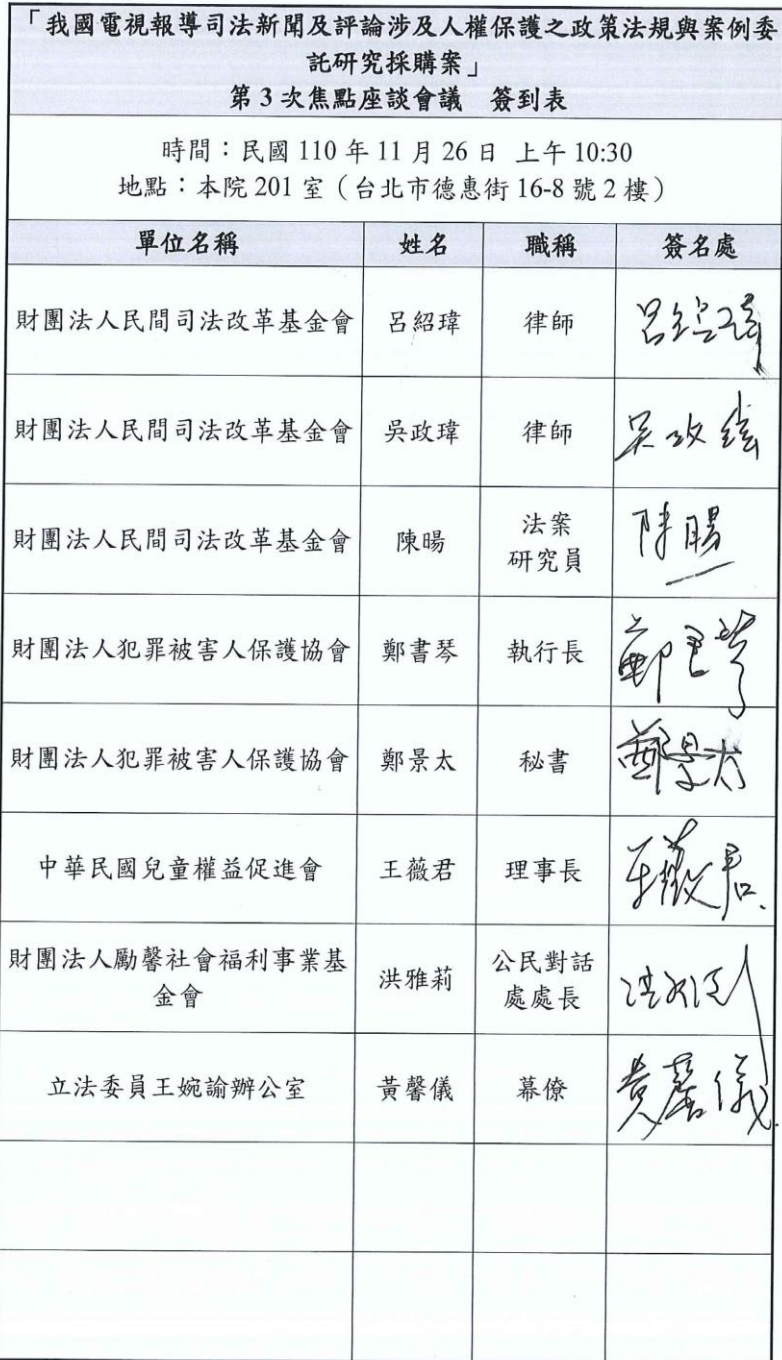 「我國電視報導司法新聞及評論涉及人權保護之政策法規與案例委
託研究採購案」
第 3 次焦點座談會議 簽到表
時間：民國 110 年 11 月 26 日 上午 10:30
地點：本院 201 室（台北市德惠街 16-8 號 2 樓）
單位名稱 姓名 職稱 簽名處
財團法人民間司法改革基金會 呂紹瑋 律師 呂紹瑋
財團法人民間司法改革基金會 吳政瑋 律師
財團法人民間司法改革基金會 陳暘 法案
研究員
陳暘
財團法人犯罪被害人保護協會 鄭書琴 執行長 鄭書琴
財團法人犯罪被害人保護協會 鄭景太 秘書 鄭景太
中華民國兒童權益促進會 王薇君 理事長 王薇君
財團法人勵馨社會福利事業基
金會
洪雅莉 公民對話
處處長
洪雅莉
立法委員王婉諭辦公室 黃馨儀 幕僚 黃馨儀